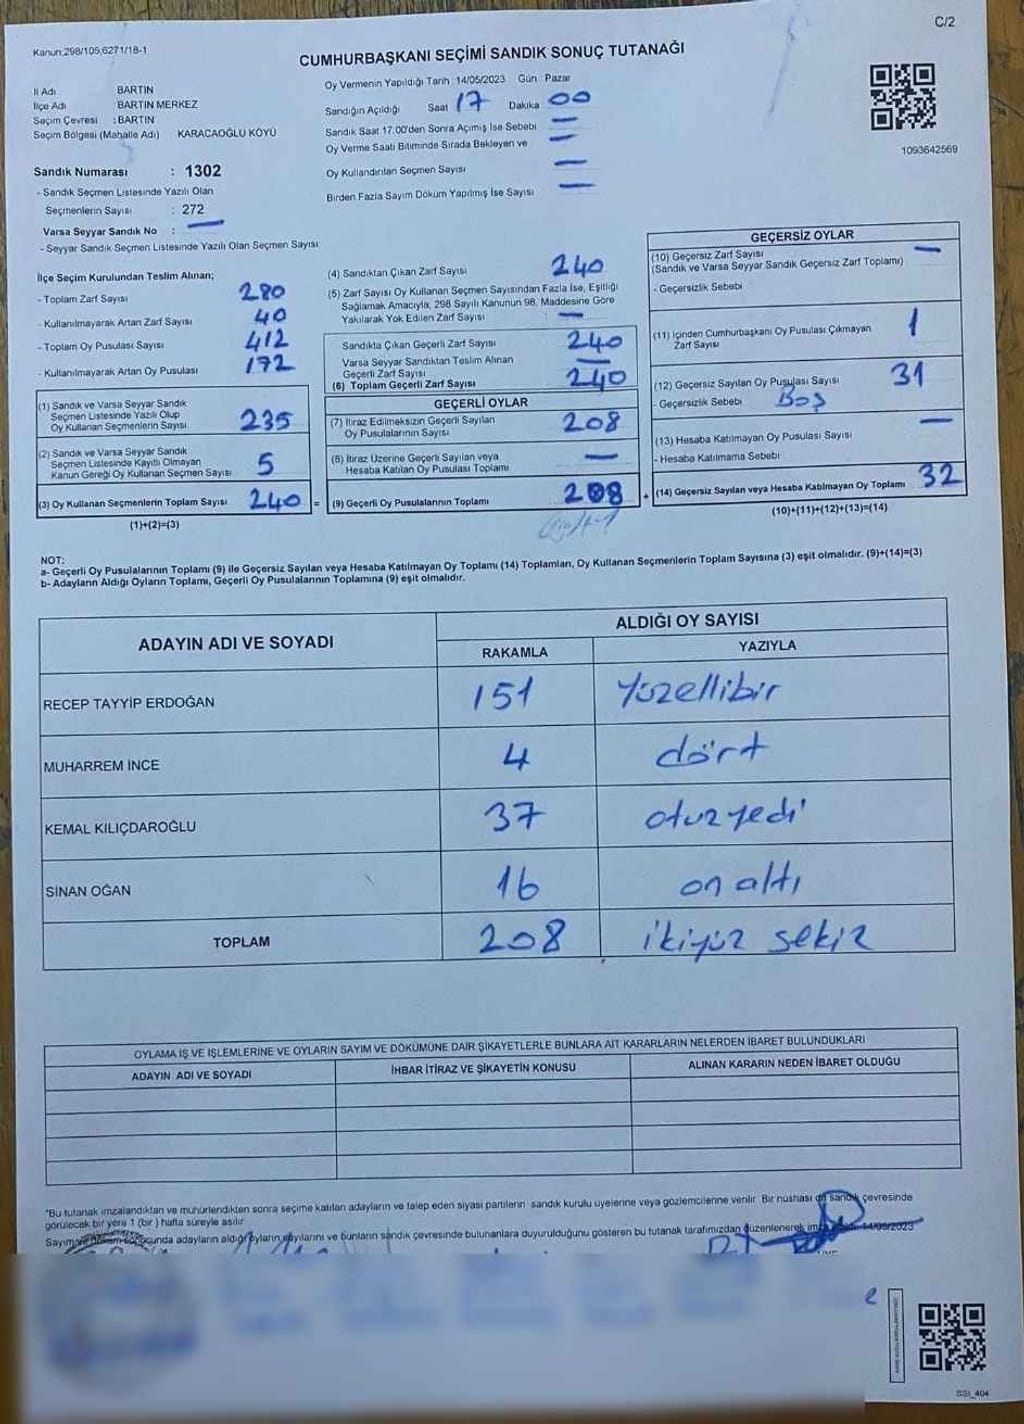 C/2
Kanun:298/105;6271/18-1
CUMHURBAŞKANI SEÇİMİ SANDIK SONUÇ TUTANAĞI
İl Adı BARTIN
İlçe Adı BARTIN MERKEZ
Seçim Çevresi : BARTIN
Seçim Bölgesi (Mahalle Adı) KARACAOĞLU KÖYÜ
Sandık Numarası : 1302
- Sandık Seçmen Listesinde Yazılı Olan
Seçmenlerin Sayısı : 272
Varsa Seyyar Sandık No : —
- Seyyar Sandık Seçmen Listesinde Yazılı Olan Seçmen Sayısı
Oy Vermenin Yapıldığı Tarih 14/05/2023 Gün Pazar
Sandığın Açıldığı Saat 17 Dakika 00
Sandık Saat 17:00'den Sonra Açımış İse Sebebi —
Oy Verme Saati Bitiminde Sırada Bekleyen ve —
Oy Kullandırılan Seçmen Sayısı —
Birden Fazla Sayım Döküm Yapılmış İse Sayısı —
1093642569
İlçe Seçim Kurulundan Teslim Alınan;
- Toplam Zarf Sayısı 280
- Kullanılmayarak Artan Zarf Sayısı 40
- Toplam Oy Pusulası Sayısı 412
- Kullanılmayarak Artan Oy Pusulası 172
(1) Sandık ve Varsa Seyyar Sandık
Seçmen Listesinde Yazılı Olup
Oy Kullanan Seçmenlerin Sayısı 235
(2) Sandık ve Varsa Seyyar Sandık
Seçmen Listesinde Kayıtlı Olmayan
Kanun Gereği Oy Kullanan Seçmen Sayısı 5
(3) Oy Kullanan Seçmenlerin Toplam Sayısı 240 =
(1)+(2)=(3)
(4) Sandıktan Çıkan Zarf Sayısı 240
(5) Zarf Sayısı Oy Kullanan Seçmen Sayısından Fazla İse, Eşitliği
Sağlamak Amacıyla, 298 Sayılı Kanunun 98. Maddesine Göre
Yakılarak Yok Edilen Zarf Sayısı —
Sandıkta Çıkan Geçerli Zarf Sayısı 240
Varsa Seyyar Sandıktan Teslim Alınan
Geçerli Zarf Sayısı —
(6) Toplam Geçerli Zarf Sayısı 240
GEÇERLİ OYLAR
(7) İtiraz Edilmeksizin Geçerli Sayılan
Oy Pusulalarının Sayısı 208
(8) İtiraz Üzerine Geçerli Sayılan veya
Hesaba Katılan Oy Pusulası Toplamı —
(9) Geçerli Oy Pusulalarının Toplamı 208 +
GEÇERSİZ OYLAR
(10) Geçersiz Zarf Sayısı —
(Sandık ve Varsa Seyyar Sandık Geçersiz Zarf Toplamı)
- Geçersizlik Sebebi
(11) İçinden Cumhurbaşkanı Oy Pusulası Çıkmayan
Zarf Sayısı 1
(12) Geçersiz Sayılan Oy Pusulası Sayısı 31
- Geçersizlik Sebebi Boş
(13) Hesaba Katılmayan Oy Pusulası Sayısı —
- Hesaba Katılmama Sebebi
(14) Geçersiz Sayılan veya Hesaba Katılmayan Oy Toplamı 32
(10)+(11)+(12)+(13)=(14)
NOT:
a- Geçerli Oy Pusulalarının Toplamı (9) ile Geçersiz Sayılan veya Hesaba Katılmayan Oy Toplamı (14) Toplamları, Oy Kullanan Seçmenlerin Toplam Sayısına (3) eşit olmalıdır. (9)+(14)=(3)
b- Adayların Aldığı Oyların Toplamı, Geçerli Oy Pusulalarının Toplamına (9) eşit olmalıdır.
ADAYIN ADI VE SOYADI
ALDIĞI OY SAYISI
RAKAMLA YAZIYLA
RECEP TAYYİP ERDOĞAN 151 Yüzellibir
MUHARREM İNCE 4 dört
KEMAL KILIÇDAROĞLU 37 otuzyedi
SİNAN OĞAN 16 on altı
TOPLAM 208 ikiyüz sekiz
OYLAMA İŞ VE İŞLEMLERİNE VE OYLARIN SAYIM VE DÖKÜMÜNE DAİR ŞİKAYETLERLE BUNLARA AİT KARARLARIN NELERDEN İBARET BULUNDUKLARI
ADAYIN ADI VE SOYADI İHBAR İTİRAZ VE ŞİKAYETİN KONUSU ALINAN KARARIN NEDEN İBARET OLDUĞU
"Bu tutanak imzalandıktan ve mühürlendikten sonra seçime katılan adayların ve talep eden siyasi partilerin sandık kurulu üyelerine veya gözlemcilerine verilir. Bir nüshası da sandık çevresinde
görülecek bir yere 1 (bir) hafta süreyle asılır.
Sayım ve döküm sonucunda adayların aldığı oyların sayılarını ve bunların sandık çevresinde bulunanlara duyurulduğunu gösteren bu tutanak tarafımızdan düzenlenerek 14/05/2023
SSI_404